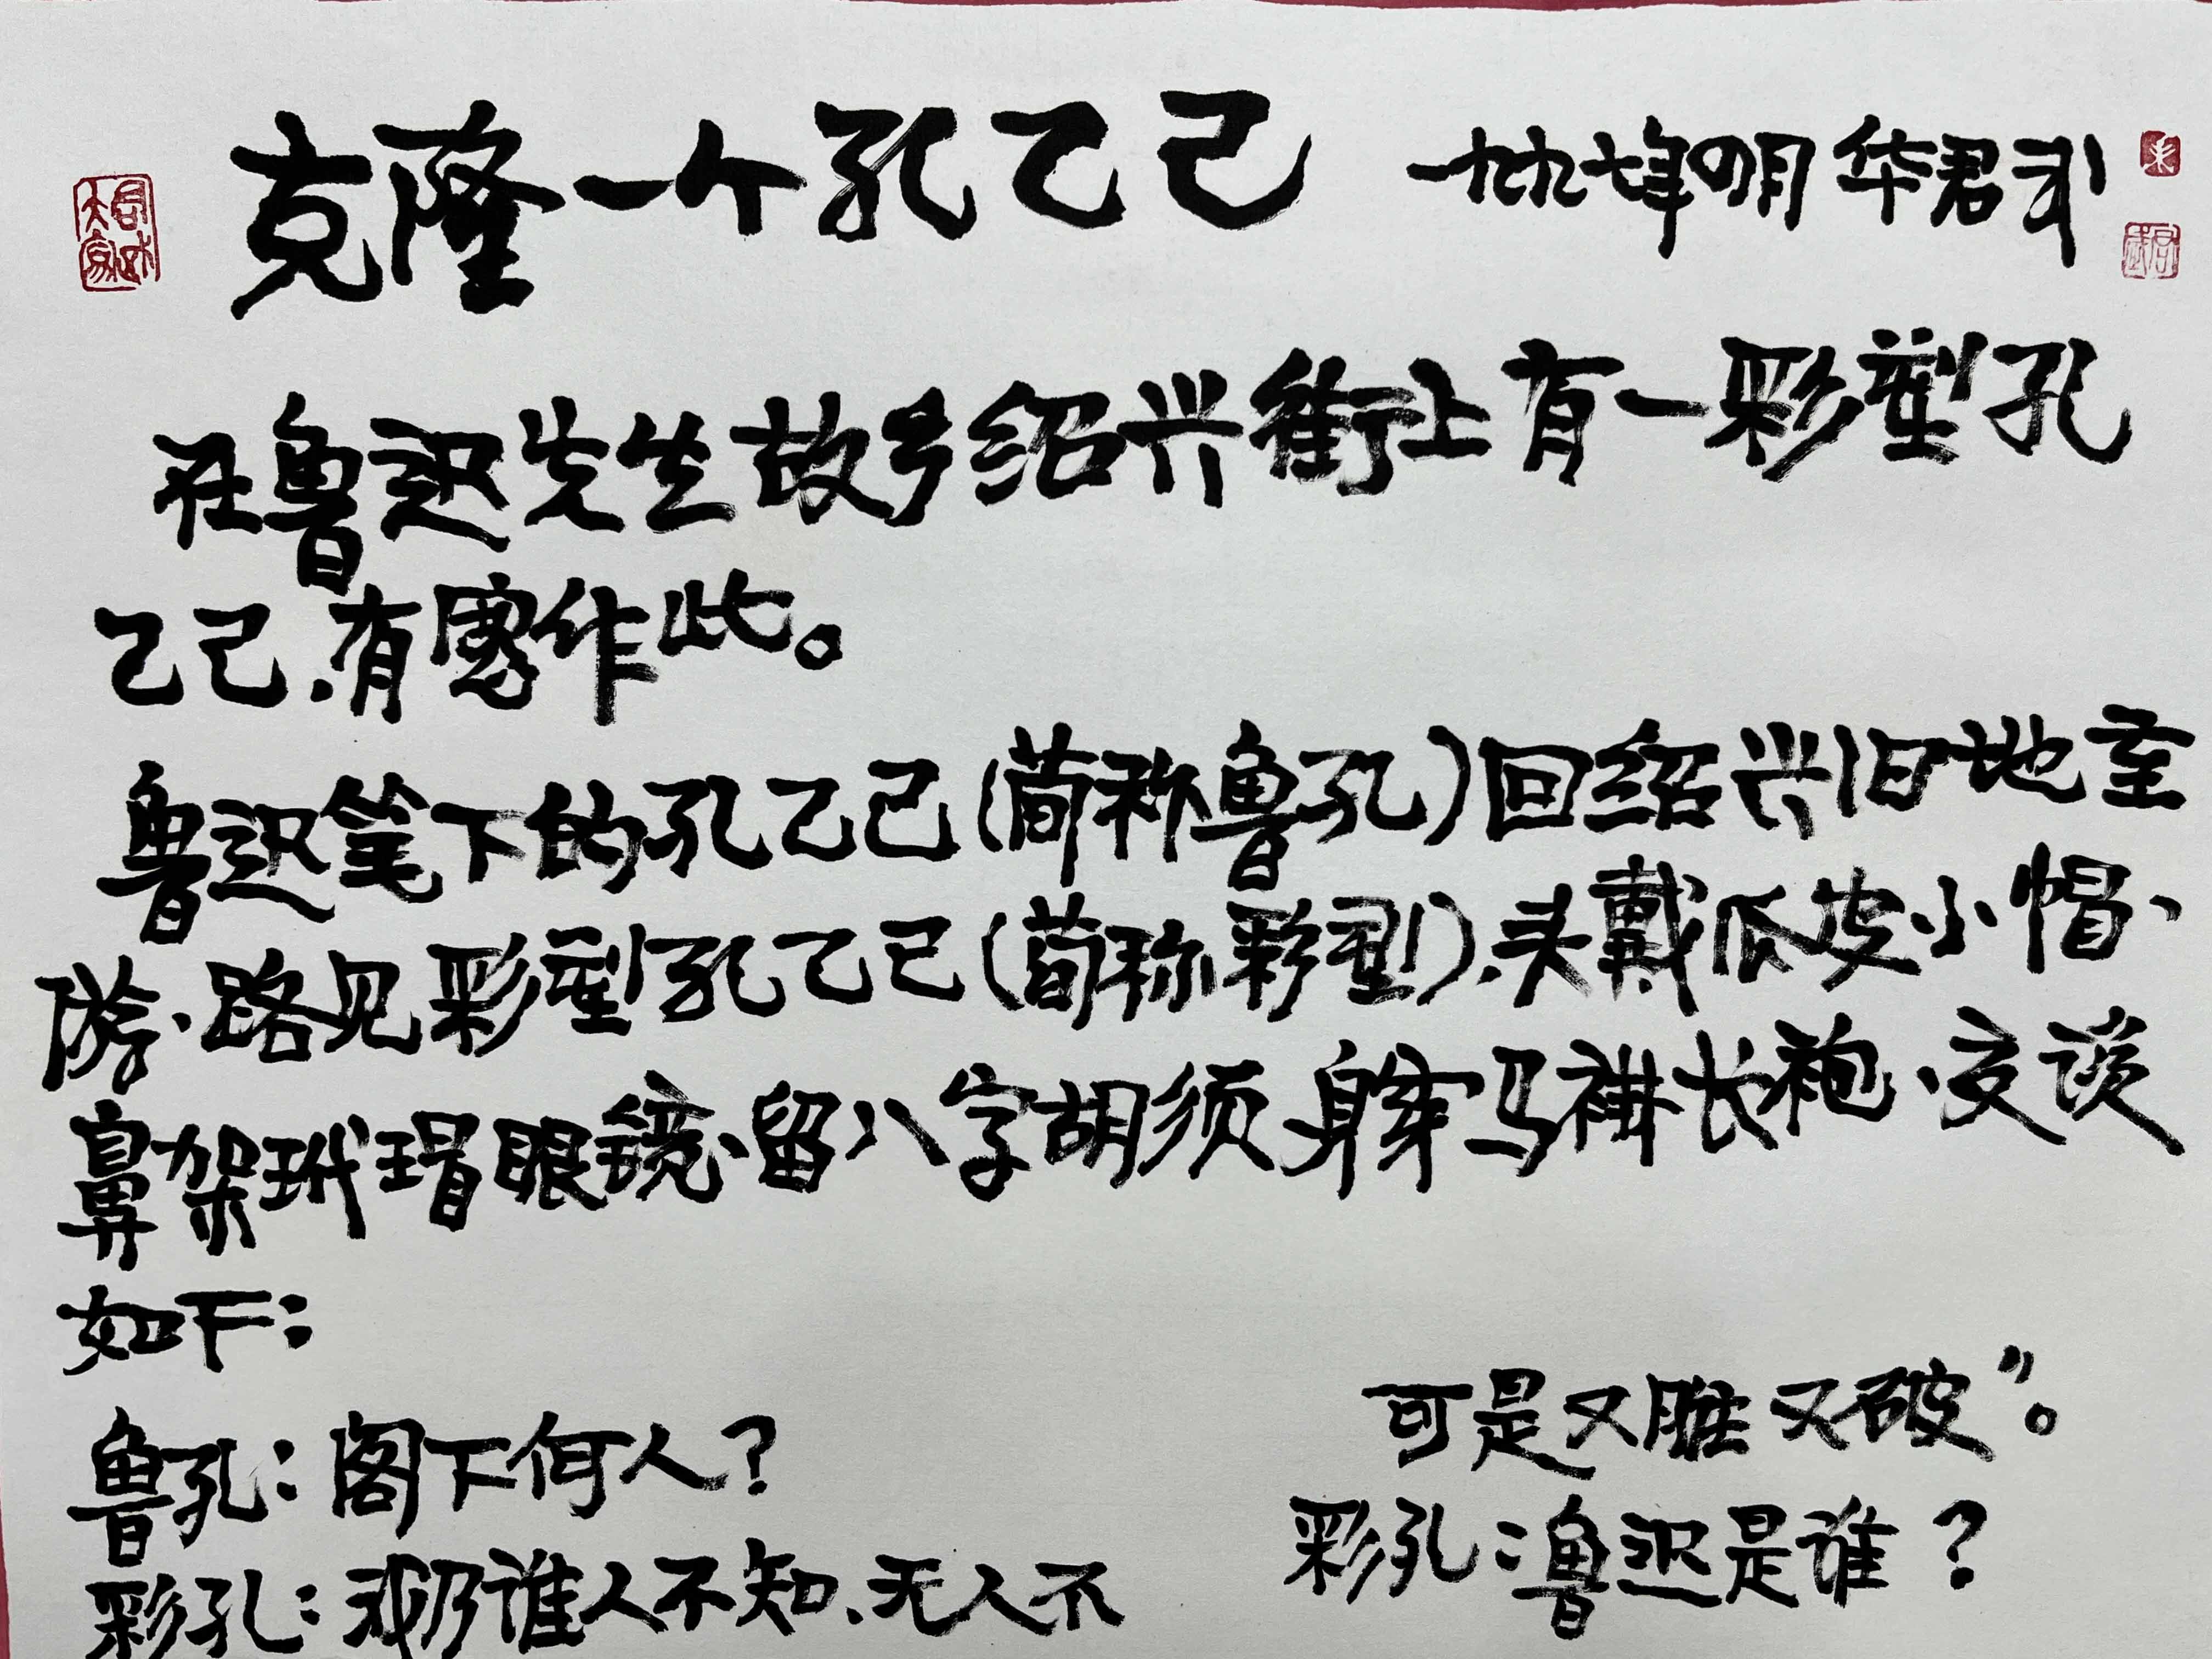 克隆一个孔乙己 一九九七年四月 华君武
君武
在鲁迅先生故乡绍兴街上有一彩型孔
乙己,有感作此。
鲁迅笔下的孔乙己(简称鲁孔)回绍兴旧地重
游、路见彩型孔乙己(简称彩型),头戴瓜皮小帽、
鼻架玳瑁眼镜、留八字胡须,身穿马褂长袍,交谈
如下:
鲁孔:阁下何人?
彩孔:我乃谁人不知、无人不
可是又脏又破”。
彩孔:鲁迅是谁?